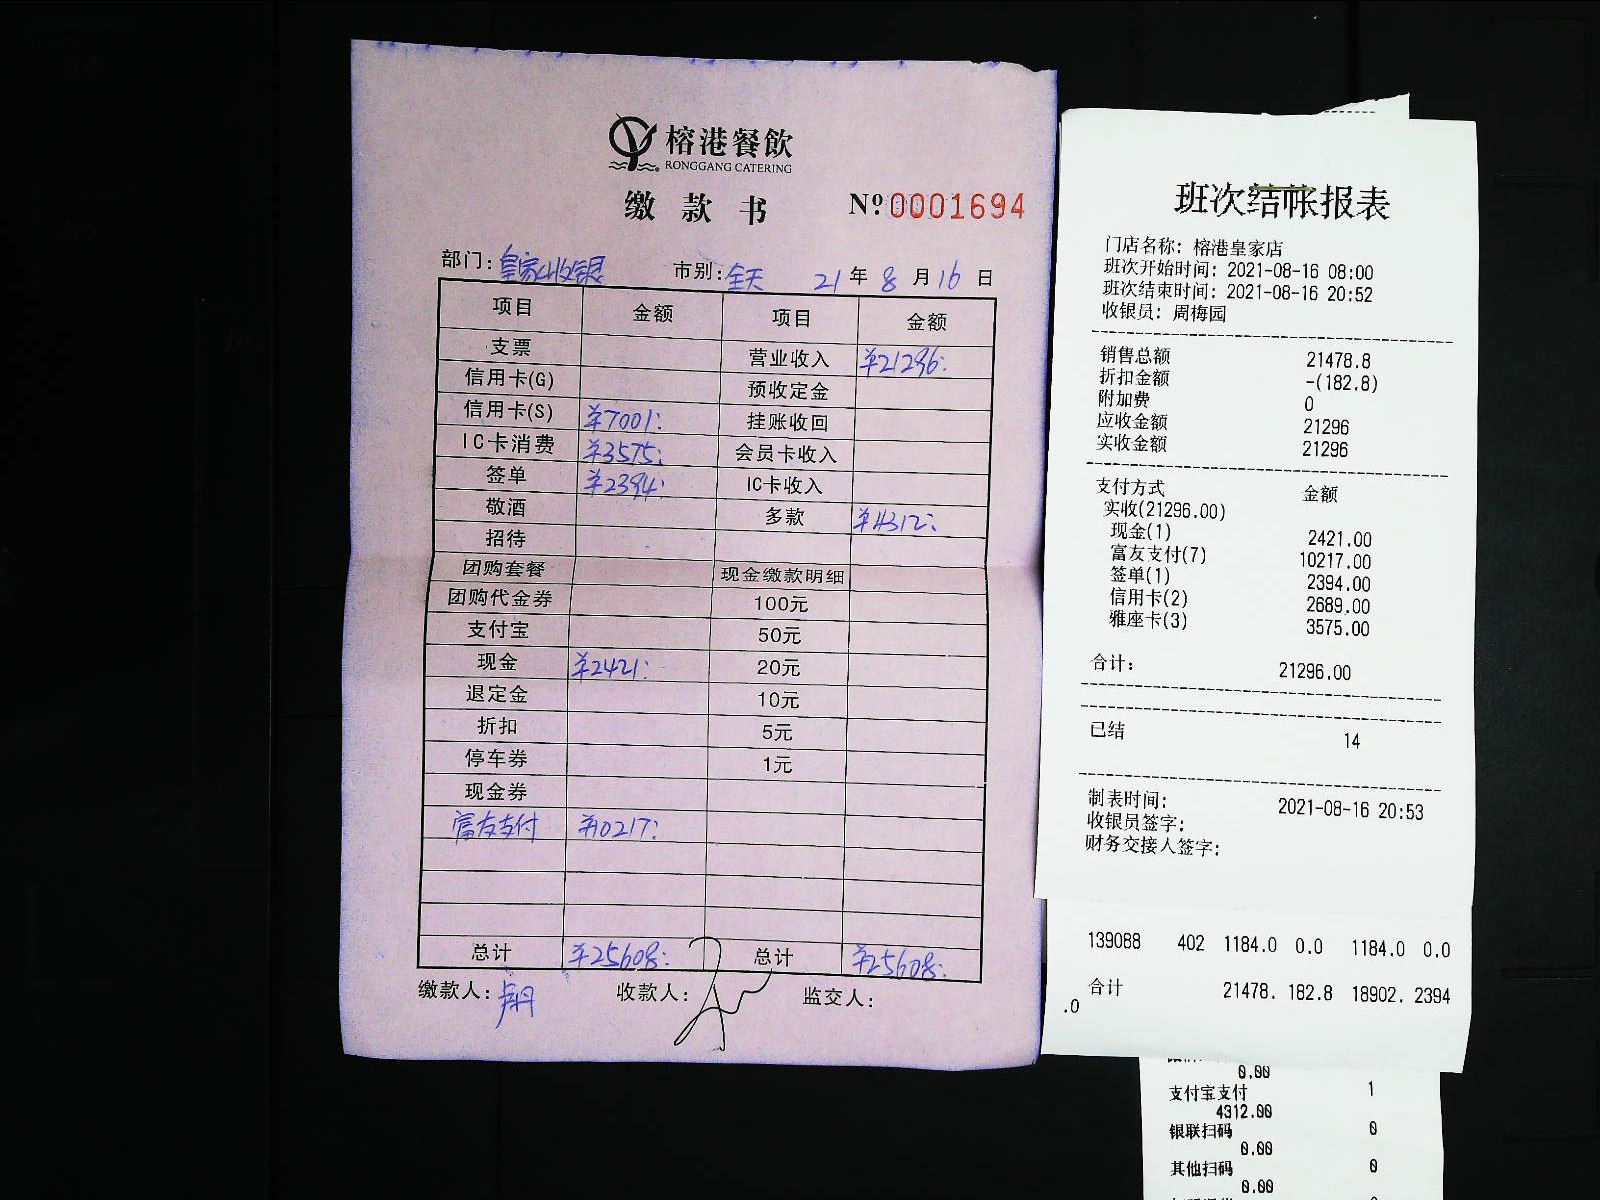 榕港餐飲
RONGGANG CATERING
缴款书 Nº0001694
部门：皇家收银 市别：全天 21年8月16日
项目 金额 项目 金额
支票 营业收入 ¥21296:
信用卡(G) 预收定金
信用卡(S) ¥7001: 挂账收回
IC卡消费 ¥3575: 会员卡收入
签单 ¥2394: IC卡收入
敬酒 多款 ¥4312:
招待
团购套餐 现金缴款明细
团购代金券 100元
支付宝 50元
现金 ¥2421: 20元
退定金 10元
折扣 5元
停车券 1元
现金券
富友支付 ¥10217:
总计 ¥25608: 总计 ¥25608:
缴款人： 收款人： 监交人：
班次结帐报表
门店名称：榕港皇家店
班次开始时间：2021-08-16 08:00
班次结束时间：2021-08-16 20:52
收银员：周梅园
销售总额 21478.8
折扣金额 -(182.8)
附加费 0
应收金额 21296
实收金额 21296
支付方式 金额
实收(21296.00)
现金(1) 2421.00
富友支付(7) 10217.00
签单(1) 2394.00
信用卡(2) 2689.00
雅座卡(3) 3575.00
合计： 21296.00
已结 14
制表时间： 2021-08-16 20:53
收银员签字：
财务交接人签字：
139088 402 1184.0 0.0 1184.0 0.0
合计 21478. 182.8 18902. 2394
.0
0.00
支付宝支付 1
4312.00
银联扫码 0
0.00
其他扫码 0
0.00